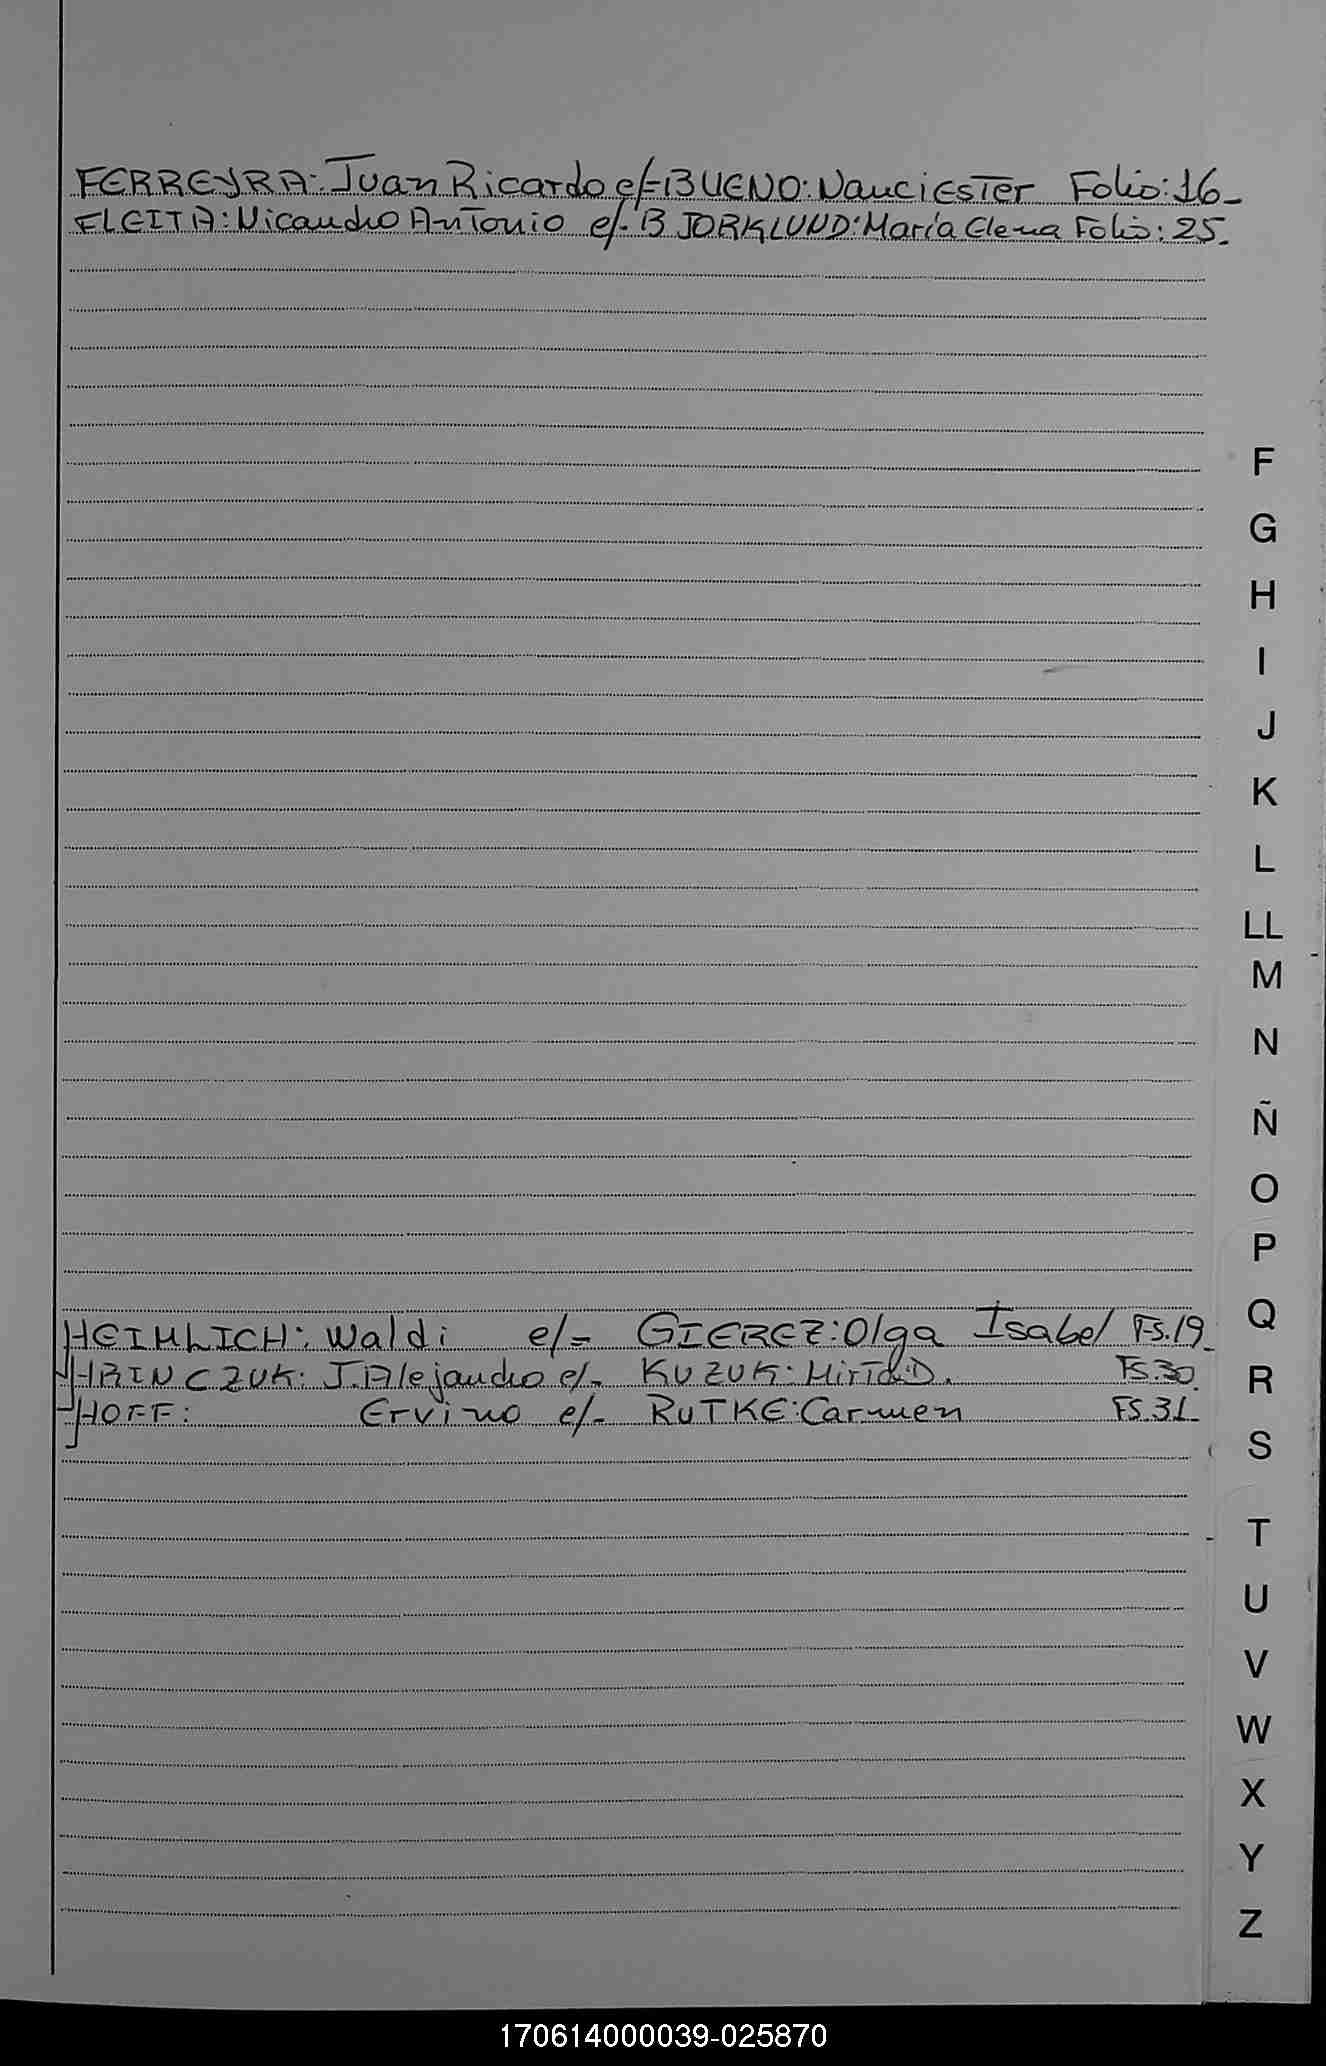 FERREYRA: Juan Ricardo c/= BUENO: Nauciester Folio: 16_
FLEITA: Nicandro Antonio c/- BJORKLUND: María Elena Folio: 25.
F
G
H
I
J
K
L
LL
M
N
Ñ
O
P
Q
HEIMLICH: Waldi c/= GIEREZ: Olga Isabel Fs.19_
HRINCZUK: J. Alejandro c/- KUZUK: D. Fs.30.
R
HOFF: Ervino c/- RUTKE: Carmen Fs.31_
S
T
U
V
W
X
Y
Z
170614000039-025870